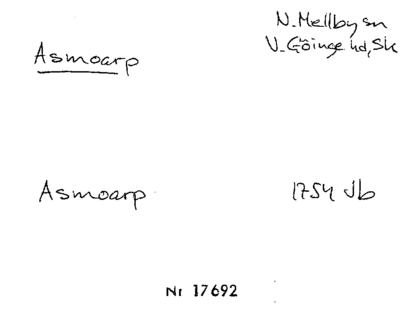 N. Mellby sn
V. Göinge hd, Sk
Asmoarp
Asmoarp 1754 Jb
Nr 17692